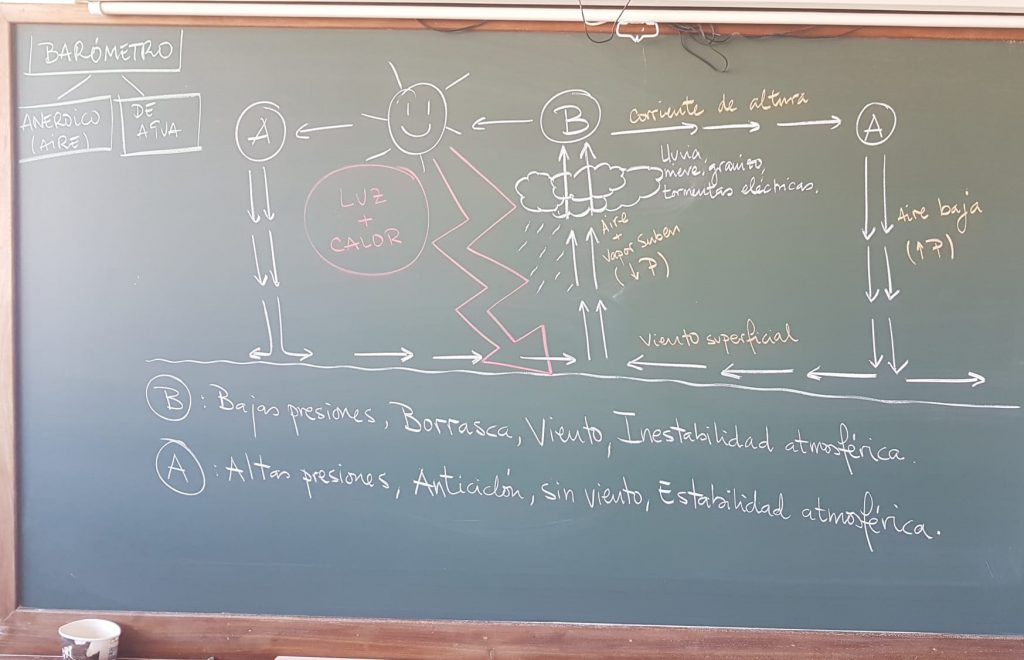 BARÓMETRO
ANEROIDICO
(AIRE)
DE
AGUA
A
B
Corriente de altura
A
LUZ
+
CALOR
Lluvia,
nieve, granizo,
tormentas eléctricas.
Aire
+
Vapor suben
(↓P)
Aire baja
(↑P)
Viento superficial
B : Bajas presiones, Borrasca, Viento, Inestabilidad atmosférica.
A : Altas presiones, Anticiclón, sin viento, Estabilidad atmosférica.